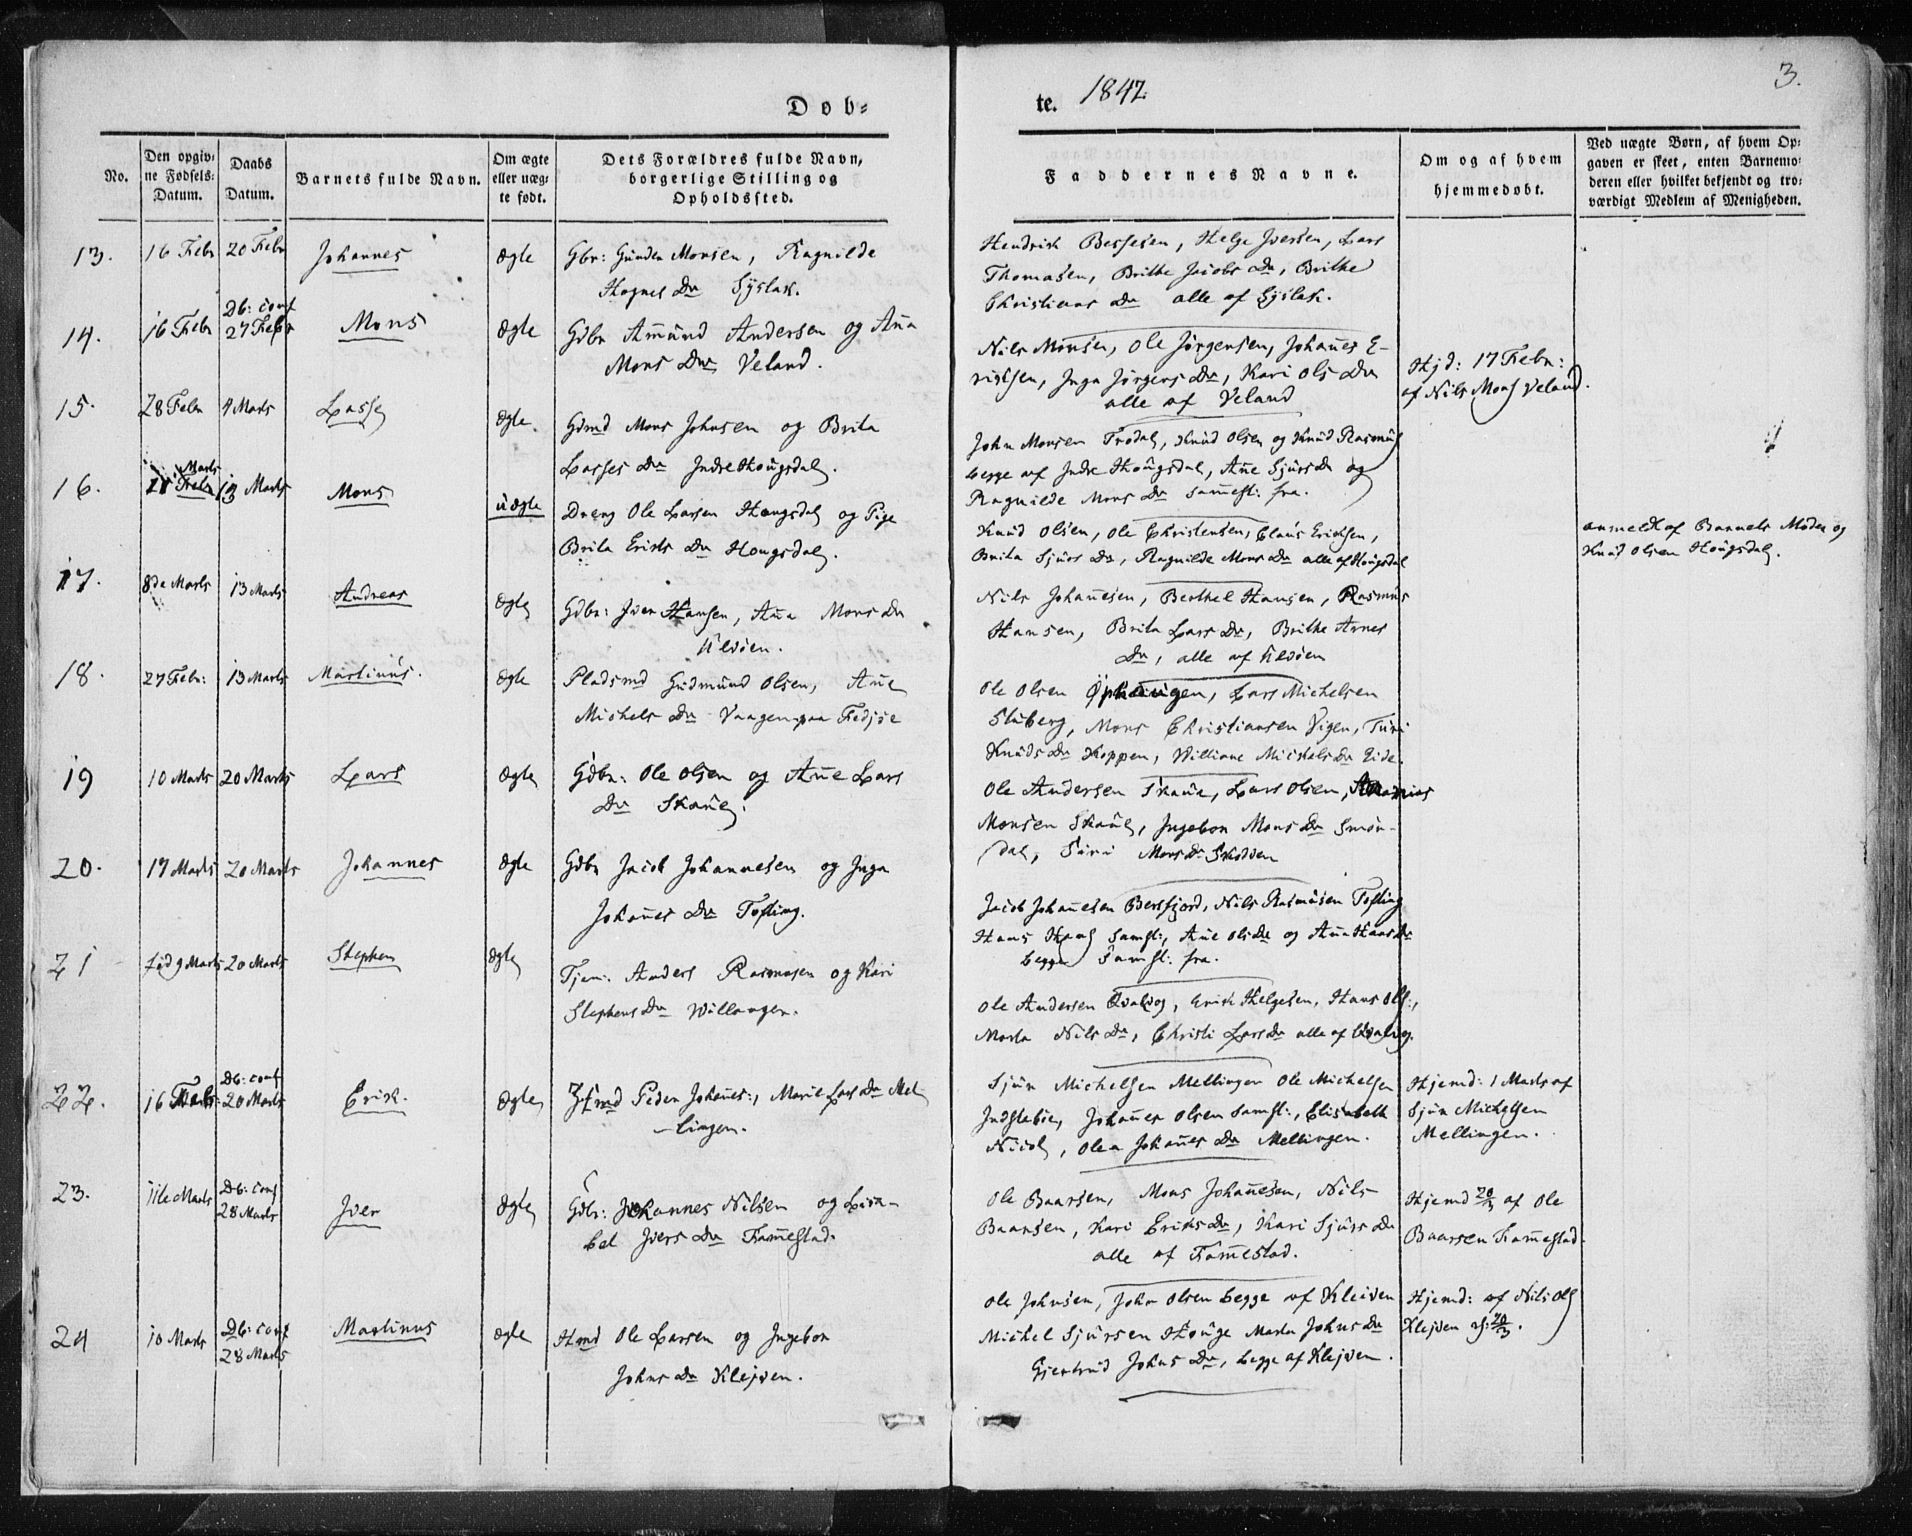 Døb=
te. 1842.
3.
No.
Den opgiv-
ne Fødsels-
Datum.
Daabs
Datum.
Barnets fulde Navn.
Om ægte
eller uæg-
te født.
Dets Forældres fulde Navn,
borgerlige Stilling og
Opholdssted.
Faddernes Navne.
Om og af hvem
hjemmedøbt.
Ved uægte Børn, af hvem Op-
gaven er skeet, enten Barnemo-
deren eller hvilket bekjendt og tro-
værdigt Medlem af Menigheden.
13. 16 Febr 20 Febr Johannes ægte
Gbr: Gunder Monsen, Ragnilde
Hognes Dr Syslak.
Hendrick Iversen, Lars
Thomasen, Brithe Jacobs Dr, Brithe
Christians Dr alle af Syslak.
14. 16 Febr Db: conf
27 Febr Mons ægte
Gdbr Amund Andersen og Ana
Mons Dtr Veland.
Nils Monsen, Ole Jørgensen, Johanes E-
riksen, Inga Jørgens Dr, Kari Ols Dr
alle af Veland
Hjd: 17 Febr:
af Nils Mons Veland.
15. 28 Febr 4 Marts Lasse ægte.
Gdmd Mons Johnsen og Brita
Lasses Dr Indre Hougsdal.
John Monsen Frodal, Knud Olsen og Knud Rasmus
begge af Indre Hougsdal, Ane Sjurs Dr og
Ragnilde Mons Dr sammest: fra.
16. 11 Marts 13 Marts Mons uægte
Dreng Ole Larsen Hougsdal og Pige
Brita Eriks Dr Hougsdal.
Knud Olsen, Ole Christensen, Claus Ericksen,
Brita Sjurs Dr, Ragnilde Mons Dr alle af Hougsdal
anmeldt af Barnets Moder og
Knud Olsen Hougsdal.
17. 8de Marts 13 Marts Andreas ægte
Gdbr: Iver Hansen, Ana Mons Dr
Uldøen.
Nils Johanesen, Berthel Hansen, Rasmus
Hansen, Brita Lars Dr, Brithe Arnes
Dr, alle af Uldøen
18. 27 Febr: 13 Marts Martinus. ægte
Pladsmd Gudmund Olsen, Ane
Michels Dr Vaagen paa Fedjøe
Ole Olsen Lars Michelsen
Stuberg, Mons Christiansen Vigen, Turi
Knuds Dr Koppen, Williane Michels Dr Eide.
19 10 Marts 20 Marts Lars ægte
Gdbr: Ole Olsen og Ane Lars
Dr Skaue.
Ole Andersen Skaue, Lars Olsen,
Monsen Skaue, Ingebor Mons Dr Smør-
dal, Siri Mons Dr
20. 17 Marts 20 Marts Johannes ægte
Gdbr Jacob Johannesen og Inga
Johanes Dr Tofting.
Jacob Johanesen Nils Rasmusen Tofting
Hans Hans samst:, Ane Ols Dr og Ana Hans Dr
begge samst: fra.
21 fød 9 Marts 20 Marts Stephen ægte
Tjen: Anders Rasmusen og Kari
Stephens Dr Willanger.
Ole Andersen Qvalvog, Erik Helgesen, Hans Ols:,
Marta Nils Dr, Christi Lars Dr alle af Qvalvog.
22. 16 Febr: Db: conf
20 Marts Erick. ægte
Peder Johanes:, Marie Lars Dr Mel
-lingen.
Sjur Michelsen Mellingen Ole Michelsen
Indstebøe, Johanes Olsen samst:, Elisabeth
Nicol, Olea Johanes Dr Mellingen.
Hjemd: 1 Marts af
Sjur Michelsen
Mellingen.
23. 11te Marts Db: conf
28 Marts Iver ægte
Gdbr: Johannes Nilsen og Lisa-
bel Ivers Dr Fammestad.
Ole Baarsen, Mons Johanesen, Nils
Baarsen, Kari Eriks Dr, Kari Sjurs Dr
alle af Fammestad.
Hjemd 20/3 af Ole
Baarsen Fammestad.
24 10 Marts Db: conf
28 Marts Martinus ægte
Hmd Ole Larsen og Ingebor
Johns Dr Klejven.
Ole Johnsen, John Olsen begge af Kleiven
Michel Sjursen Houge Marta Johns Dr
Gjertrud Johns Dr, begge af Klejven.
Hjemd: af Nils Ols
Klejven 20/3.